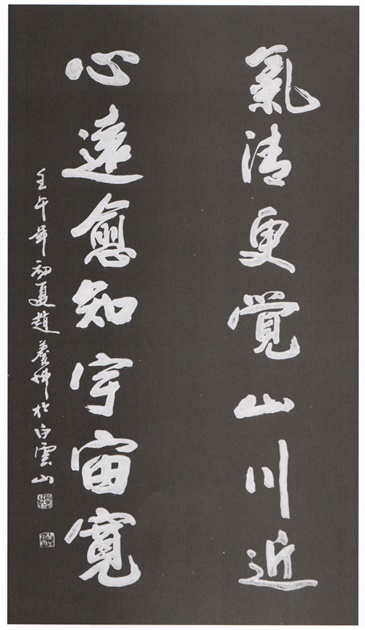 氣清更覺山川近
心遠愈知宇宙寬
壬午年初夏趙於白雲山